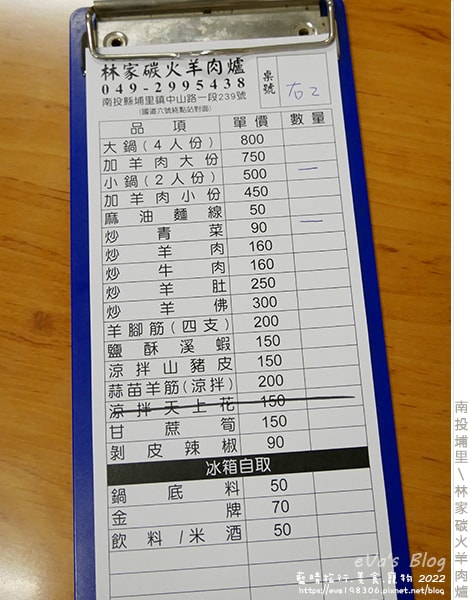 林家碳火羊肉爐
049-2995438
南投縣埔里鎮中山路一段239號
(國道六號終點站對面)
桌號 右2
品項 單價 數量
大鍋(4人份) 800
加羊肉大份 750
小鍋(2人份) 500 一
加羊肉小份 450
麻油麵線 50
炒青菜 90 一
炒羊肉 160
炒牛肉 160
炒羊肚 250
炒羊佛 300
羊腳筋(四支) 200
鹽酥溪蝦 150
涼拌山豬皮 150
蒜苗羊筋(涼拌) 200
涼拌天上花 150
甘蔗筍 150
剝皮辣椒 90
冰箱自取
鍋底料 50
金牌 70
飲料/米酒 50
南投埔里\林家碳火羊肉爐
eVa's Blog
藍時旅行.美食.寵物 2022
https://eva198306.pixnet.net/blog